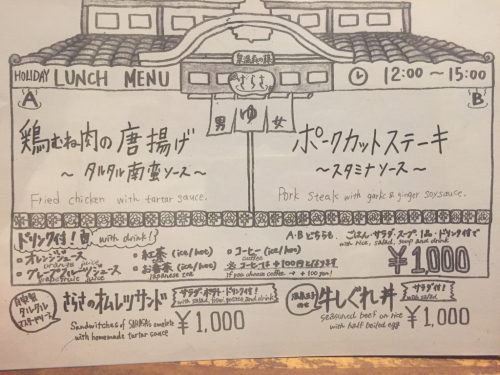 HOLIDAY LUNCH MENU
12:00〜15:00
さらさ
男 ゆ 女
A
鶏むね肉の唐揚げ
〜タルタル南蛮ソース〜
Fried chicken with tartar sauce.
B
ポークカットステーキ
〜スタミナソース〜
Pork Steak with garlic & ginger soysauce.
ドリンク付! with drink!
オレンジジュース orange juice
グレープフルーツジュース grapefruit juice
紅茶 (ice/hot)
お番茶 (ice/hot) Japanese tea
コーヒー (ice/hot) coffee
※コーヒーは+100円になります
if you choose coffee → +100yen!
A・Bどちらも、ごはん・サラダ・スープ・1品・ドリンク付で
with rice, salad, soup and drink
¥1,000
自家製タルタル
さらさのオムレツサンド
サラダ・ポテト・ドリンク付!
with salad, potato and drink
Sandwitches of SARASA's omelete
with homemade tartar sauce
¥1,000
温泉玉子のせ
牛しぐれ丼
サラダ付!
with salad
seasoned beef on rice
with half boiled egg
¥1,000